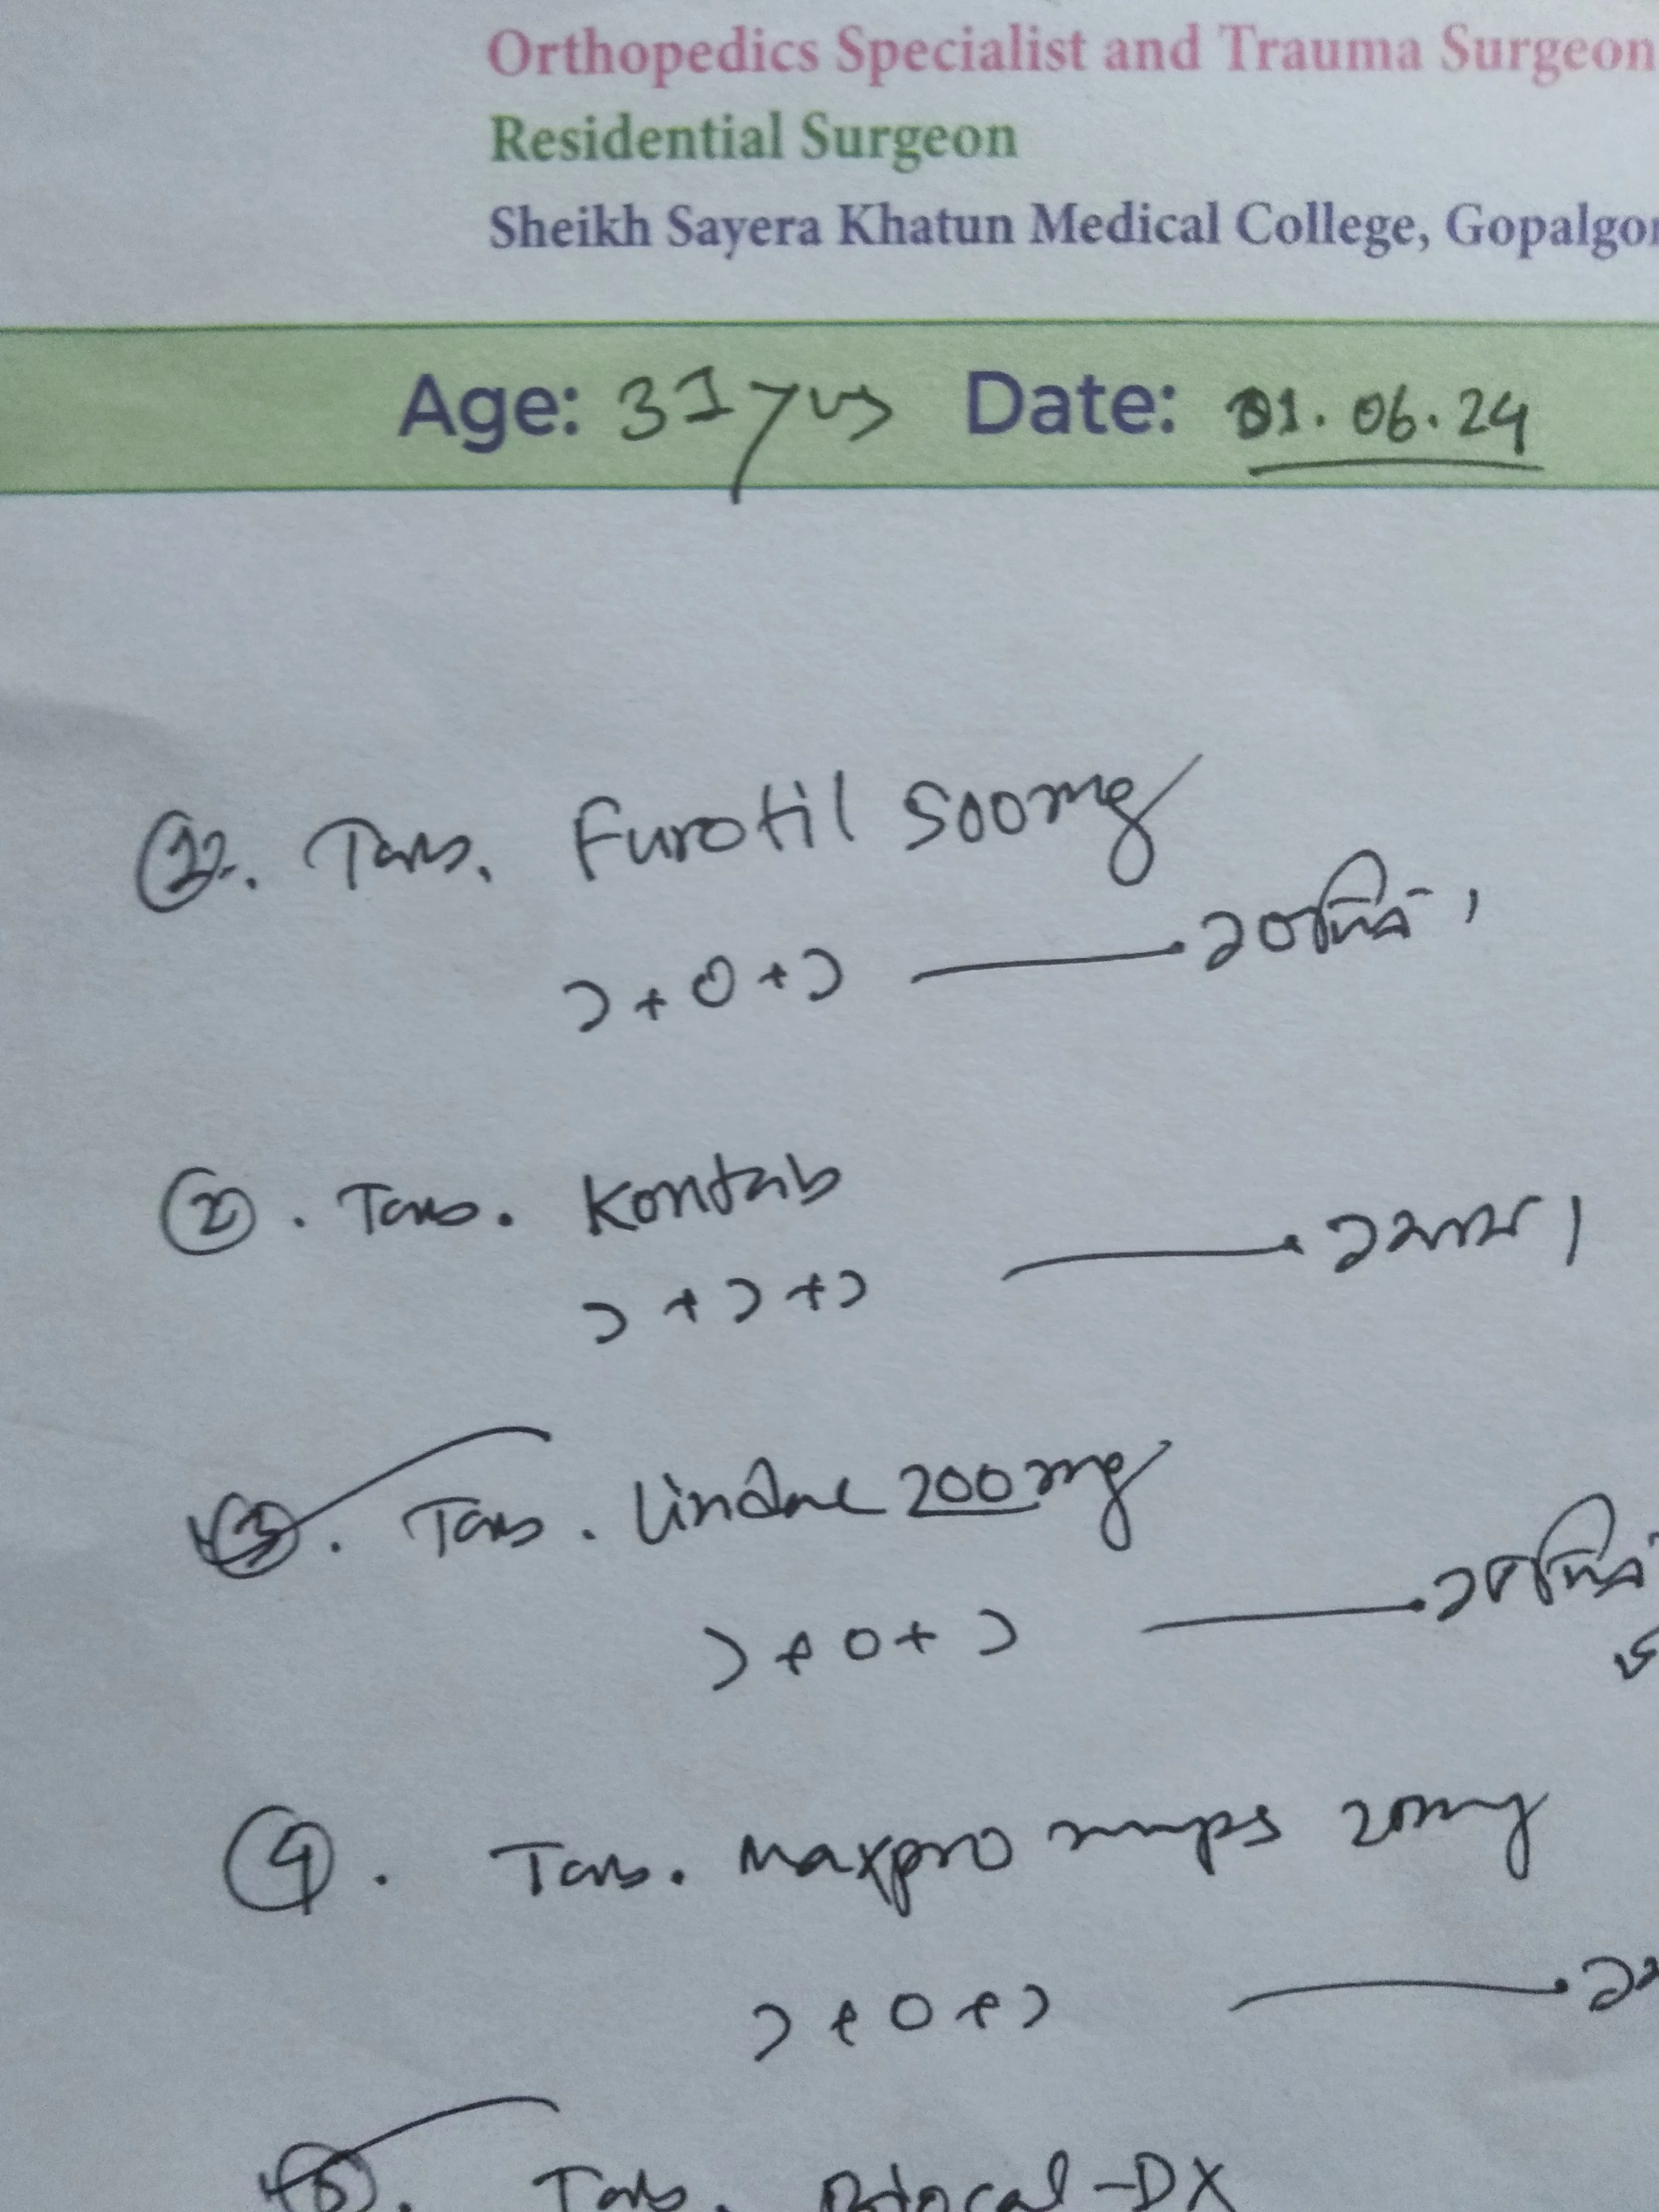 Orthopedics Specialist and Trauma Surgeon
Residential Surgeon
Sheikh Sayera Khatun Medical College, Gopalgon
Age: 31 yrs Date: 01.06.24
Tab. Furotil 500mg
১+০+১ — ১০দিন।
②. Tab. Kontab
১+১+১ — ১মাস।
③. Tab. Lindac 200mg
১+০+১ — ১৫দিন
④. Tab. Maxpro mups 20mg
১+০+১ — ১
⑤. Tab. -DX